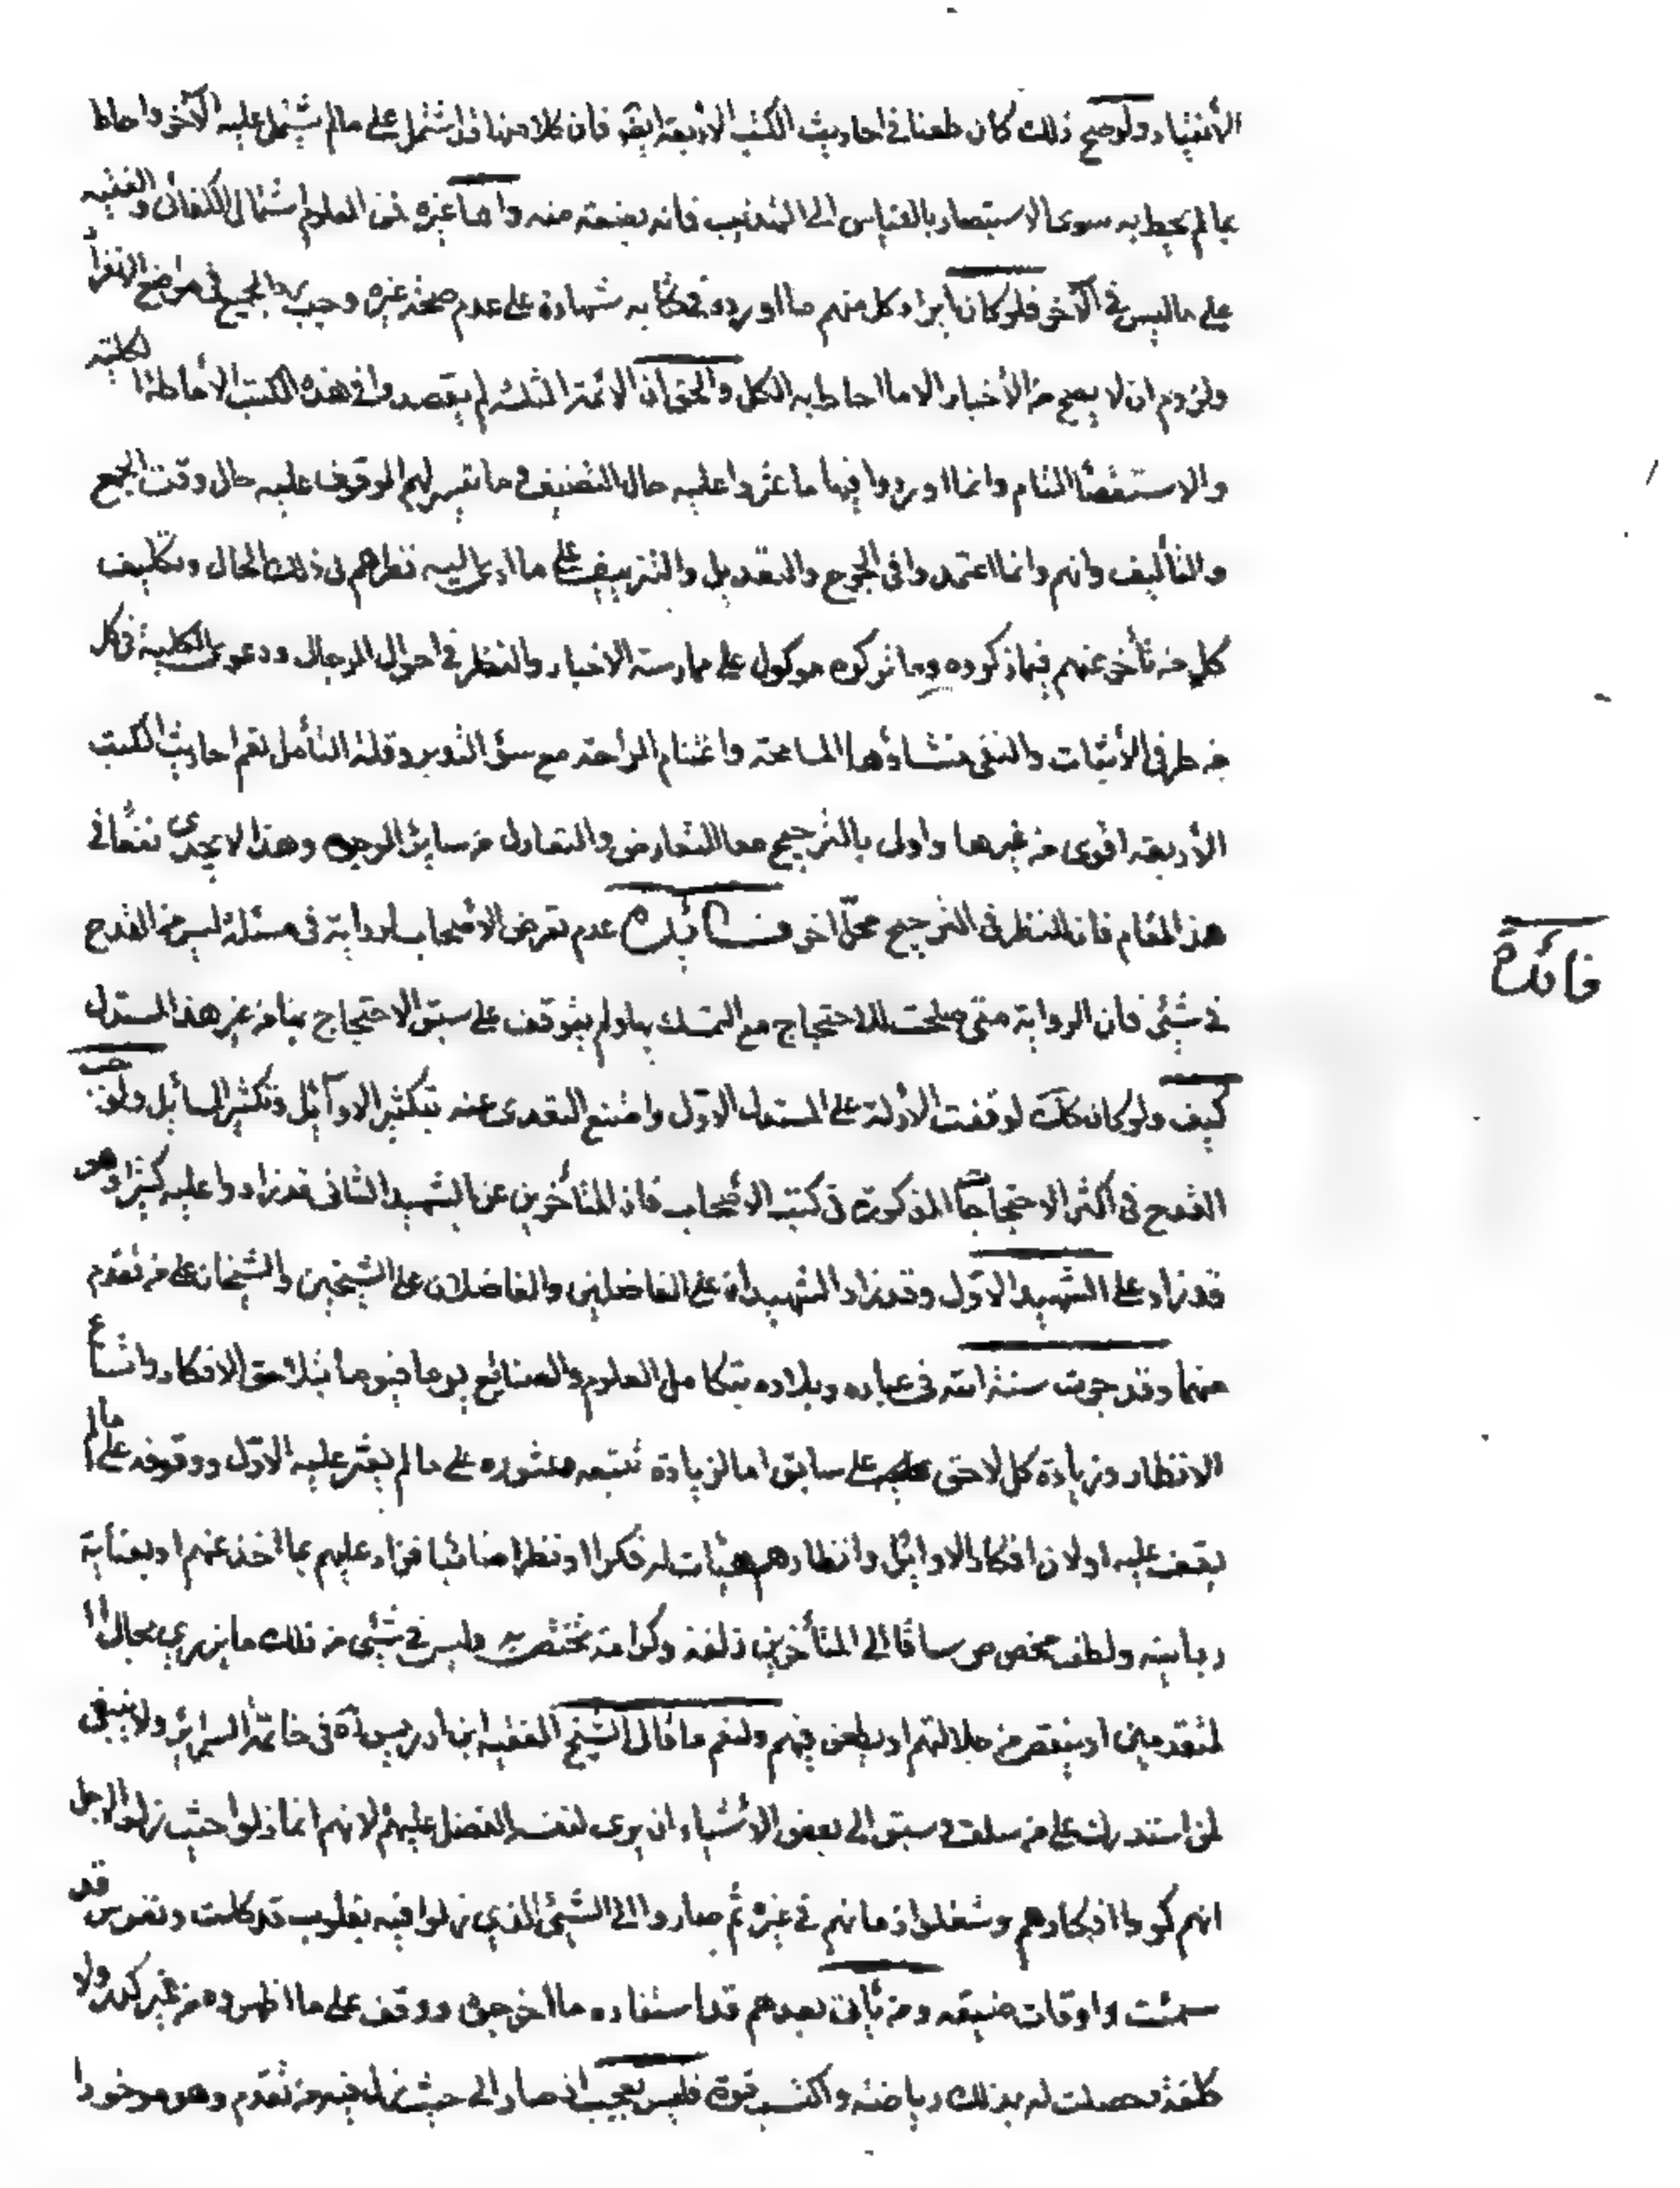 الأنقياد ولو صح ذلك كان طعنا فى احاديث الكتب الاربعة ايضً فان كلا منها قد اشتمل على ما لم يشتمل عليه الآخر واحاط
بما لم يحط به سوى الاستبصار بالقياس الى التهذيب فانه بضعة منه واما غيره فمن المعلوم اشتمال الكافى والفقيه
على ما ليس فى الآخر فلو كان ايراد كل منهم ما اورده فى كتابه شهادة على عدم صحة غيره وجب رد الجميع فى مواضع الانفرأ
ولزوم ان لا يصح من الأخبار الا ما احاط به الكل والحق ان الائمة الثلثه لم يقصدوا فى هذه الكتب الأحاطة الكلية
والاستقصأ التام وانما اوردوا فيها ما عثروا عليه حال التصنيف و ما تيسر لهم الوقوف عليه حال وقت الجمع
والتأليف وانهم وانما اعتمدوا فى الجرح والتعديل والتزييف على ما ادى اليه نظرهم فى ذلك الحال وتكليف
كل من تأخر عنهم فيما ذكروه وما تركوه موكول على ممارسة الاخبار والنظر فى احوال الرجال ودعوى الكلية فى كل
من طرفى الأثبات والنفى منشاؤها المسامحة واغتنام الراحة مع سؤ التدبر وقلة التأمل نعم احاديث الكتب
الأربعة اقوى من غيرها واولى بالترجيح مع التعارض والتعادل من سائر الوجوه وهذا لا يجدى نفعًا فى
هذا المقام فان للنظر فى الترجيح محلّ اخر فــائدة عدم تعرض الأصحاب لرواية فى مسئلة ليس من القدح
فى شئى فان الرواية متى صلحت للاحتجاج صح التمسك بها ولم يتوقف على سبق الاحتجاج بها من غير هذا المستدل
كيف ولو كان كك لوقفت الأدلة على المستدل الاوّل وامتنع التعدى عنه بتكثير الدلآئل وتكثير المسائل ولوجب
القدح فى اكثر الاحتجاجات المذكورة فى كتب الأصحاب فان المتأخرين عن الشهيد الثانى قد زادوا عليه كثيرا وهو
قد زاد على الشهيد الاوّل وقد زاد الشهيدان على الفاضلين والفاضلان على الشيخين والشيخان على من تقدم
منهما وقد جرت سنة الله فى عباده وبلاده بتكامل العلوم والصنائع يوما فيوما بتلاحق الافكار واتساع
الانظار وزيادة كل لاحق على سابق اما لزيادة تتبعه وعثوره على ما لم يعثر عليه الاوّل ووقوفه على ما لم
يقف عليه او لان افكار الاوايل وانظارهم هيأت له فكرا او نظرا صائبا فزاد عليهم بما اخذ عنهم او بعناية
ربانيه ولطف مخصوص ساقا الى المتأخرين زلفة وكرامة تختص به وليس فى شئى من ذلك ما يزرى بحال ا
لمتقدمين او ينقص من جلالتهم او يطعن فيهم ولنعم ما قال الشيخ الفقيه ابن ادريس ره فى خاتمة السرائر ولا ينبغى
لمن استدرك على من سلف و سبق الى بعض الاشياء ان يرى لنفسه الفضل عليهم لانهم انما زلوا حيث زلوا لاجل
انهم كدوا افكارهم وشغلوا زمانهم فى غيره ثم صاروا الى الشيئ الذي زلوا فيه بقلوب قد كلت ونفوس قد
سئمت واوقات ضيقه ومن يأتى بعدهم قد استفاد ما اخرجوه ووقف على ما اظهروه من غير كد ولا
كلفة وحصلت له بذلك رياضة واكتسب قوة فليس بعجب اذا صار الى حيث زل فيه من تقدم وهو موفور ا
فائدة